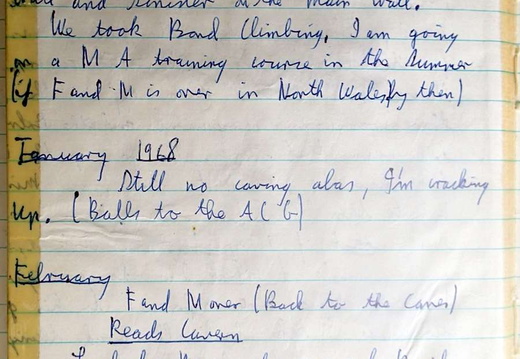 and sinister at the main wall.
We took Bond Climbing. I am going
on a M A training course in the Summer
(if F and M is over in North Wales by then)
January 1968
Still no caving alas, I'm cracking
up. (Balls to the A C G)
February
F and M over (Back to the Caves)
Reads Cavern